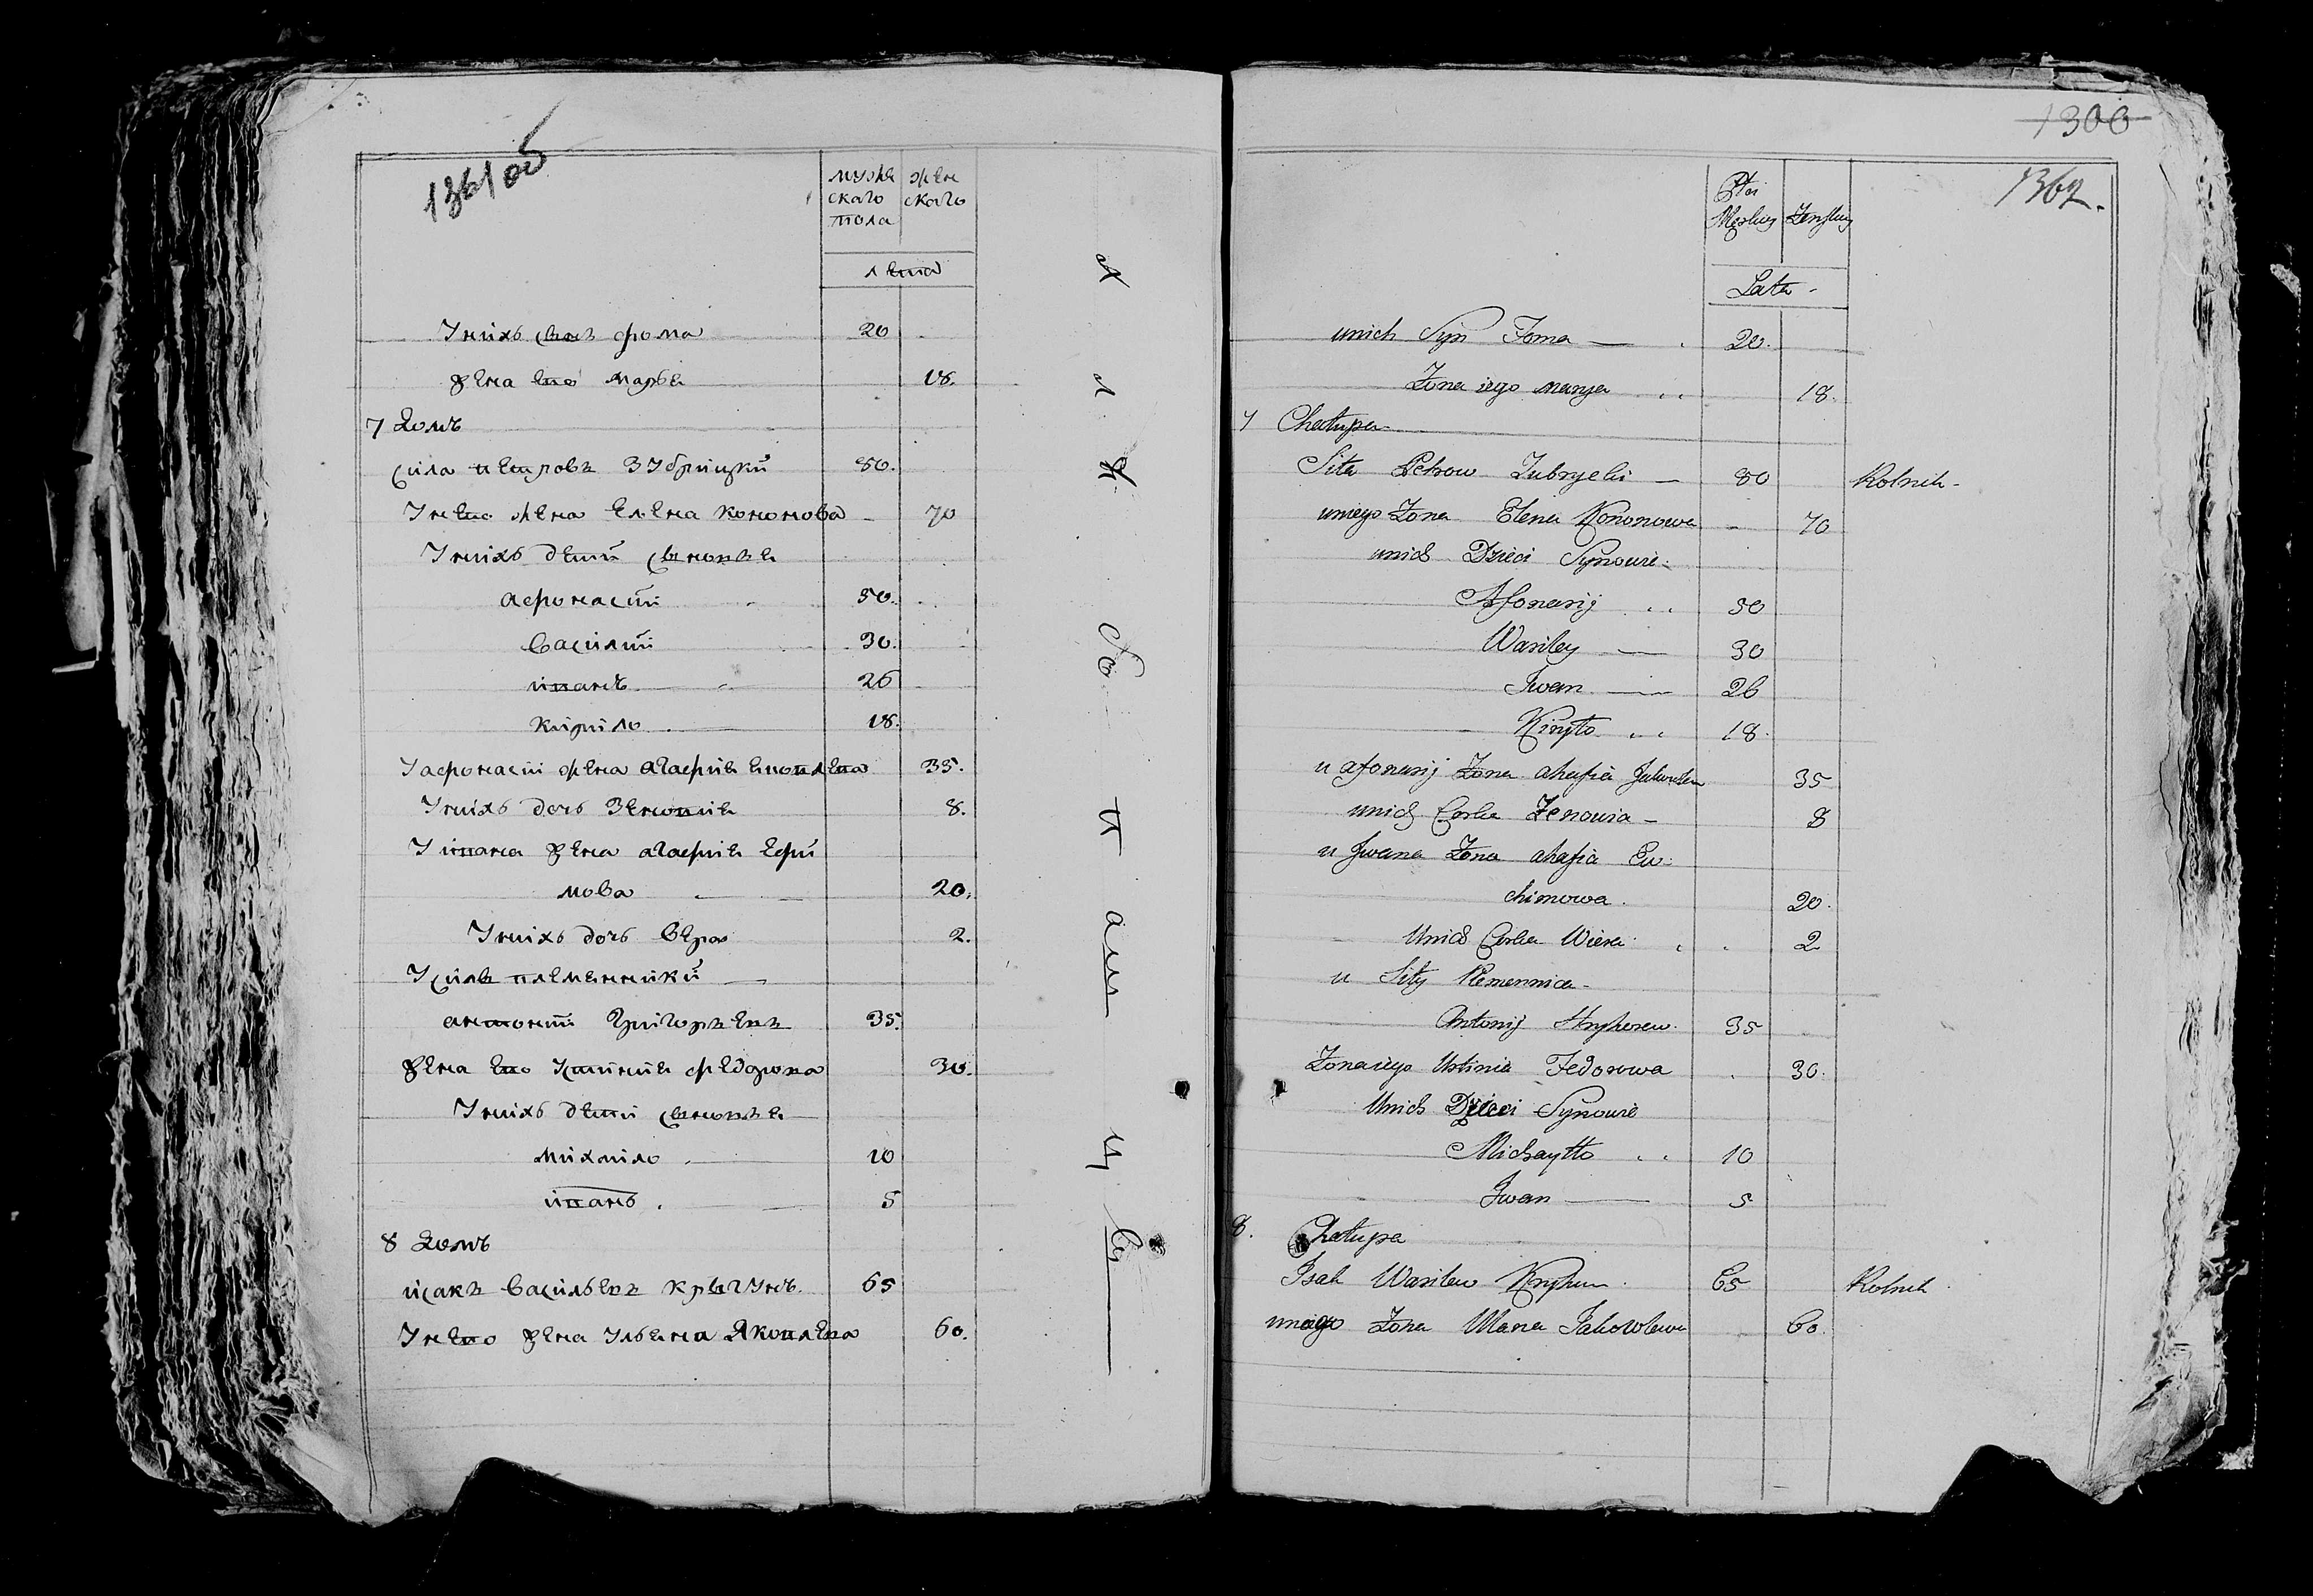 136105
мужс
ского
пола
жен
ского
лета
Унихъ сынъ фома 20
жена его марья 18.
7 Домъ
сила петровъ Зубрицкий 80.
Унего жена Елена кононова 70
Унихъ дети сыновья
афонасий 50.
василий 30.
иванъ 26
кирило 18.
Уафонасия жена агафия яковлева 35.
Унихъ дочь Зеновия 8.
У ивана жена агафия Ефи
мова 20.
Унихъ дочь вера 2.
У силы племенники
антоний Григорьевъ 35.
жена его устиния федорова 30.
Унихъ дети сыновья
михаило 10
иванъ 5
8 Домъ
исакъ васильевъ крыгунъ 65
Унего жена ульяна Яковлева 60.
1300
1362.
Płci
Męskiey Żeńskiey
Lata
unich Syn Foma 20.
Żona iego marya 18.
7 Chałupa
Siła Petrow Zubrycki 80 Rolnik
uniego Żona Elena Kononowa 70
unich Dzieci Synowie
Afonasij 50
Wasiley 30
Iwan 26
Kiryło 18.
u afonasij Żona ahafia Jakowlewa 35
unich Corka Zenowia 8
u Iwana Żona ahafia Ew
chimowa 20.
Unich Corka Wiera 2
u Siły Plemennica
Antonij Hryhorew 35
Żona iego Ustinia Fedorowa 30.
Unich Dzieci Synowie
Michayłło 10
Iwan 5
8. Chałupa
Isak Wasilew Kryhun 65 Rolnik
uniego Żona Ulana Jakowlewa 60.